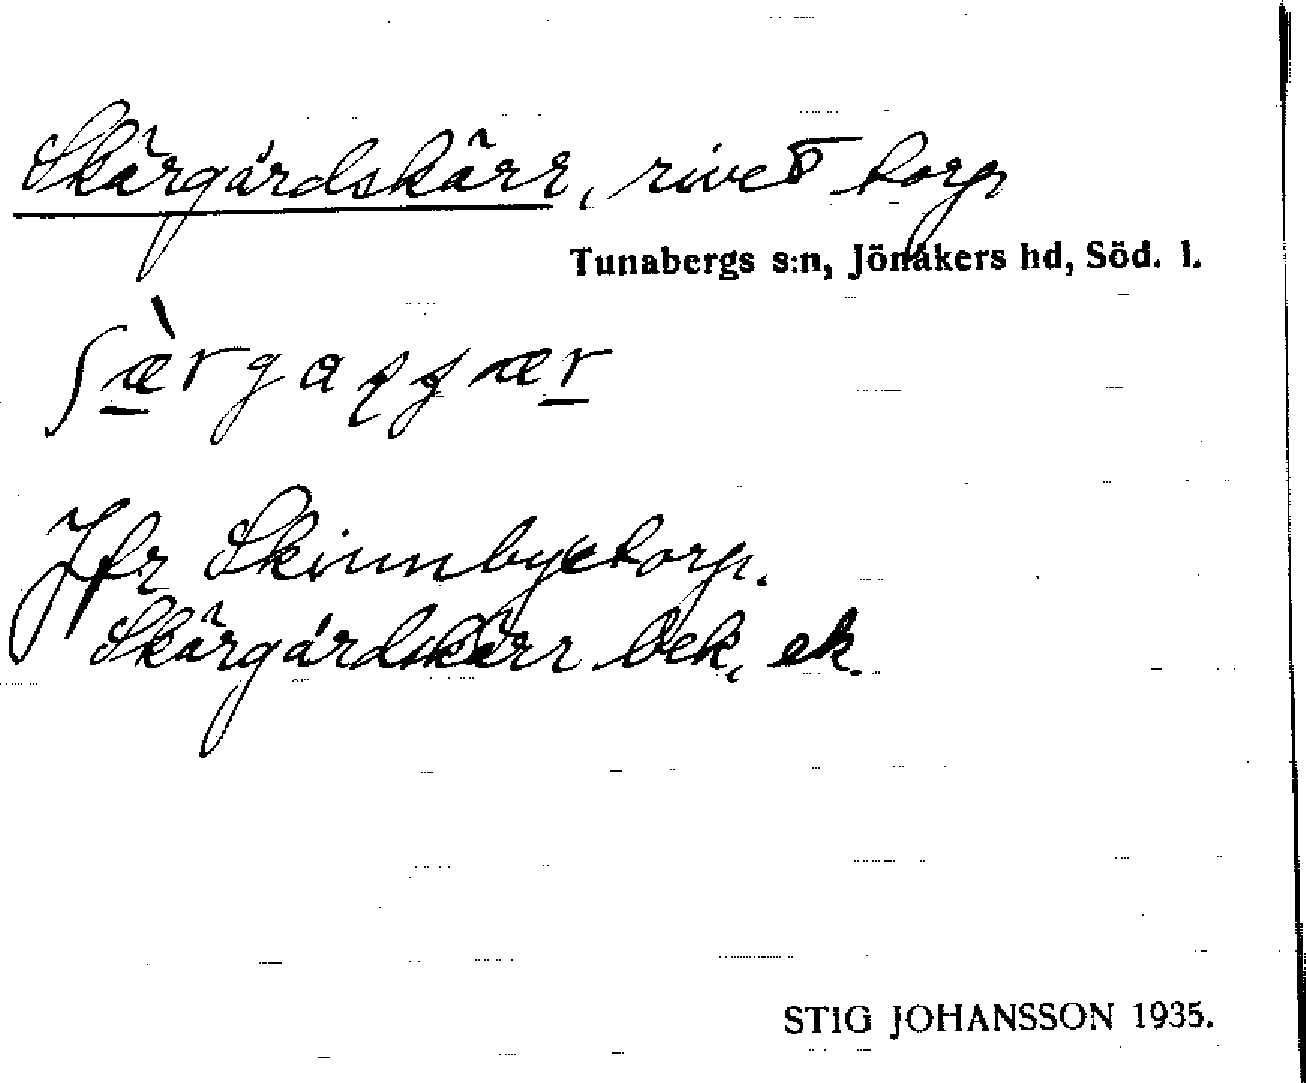 Skärgårdskärr, rivet torp
Tunabergs s:n, Jönåkers hd, Söd. l.
Jfr Skinnbytorp.
Skärgårdskärr bek. ek.
STIG JOHANSSON 1935.